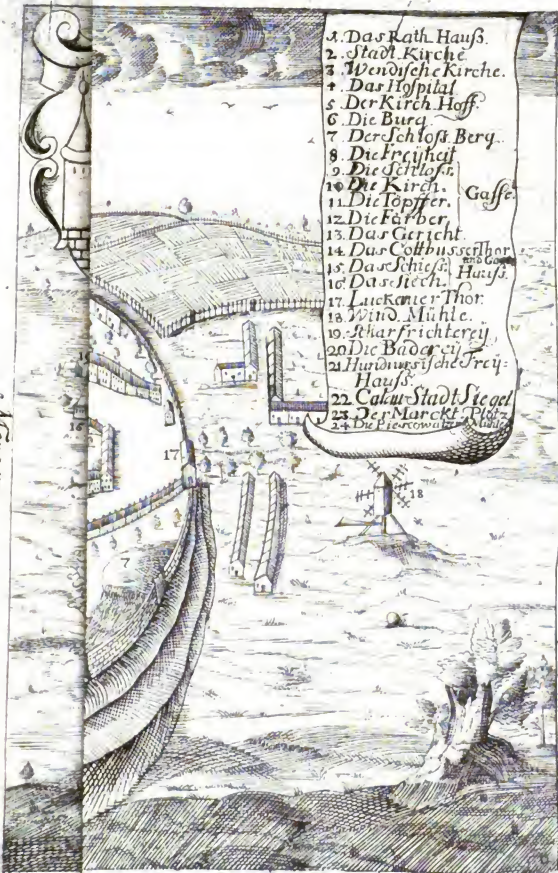 1. Das Rath Hauß.
2. Stadt Kirche.
3. Wendische Kirche.
4. Das Hospital
5. Der Kirch Hoff.
6. Die Burg.
7. Der Schloß Berg.
8. Die Freyheit
9. Die Schloß.
10. Die Kirch.
11. Die Töpffer.
12. Die Färber.
Gasse.
13. Das Gericht.
14. Das Cottbusser Thor
15. Das Schieß.
16. Das Siech.
Hauß.
17. Luckauier Thor.
18. Wind. Mühle.
19. Scharfrichterey.
20. Die Baderey
21. Frey-
Hauß.
22. Calau Stadt Siegel
23. Der Marckt Platz
24. Die Mühle
16
17
18
7